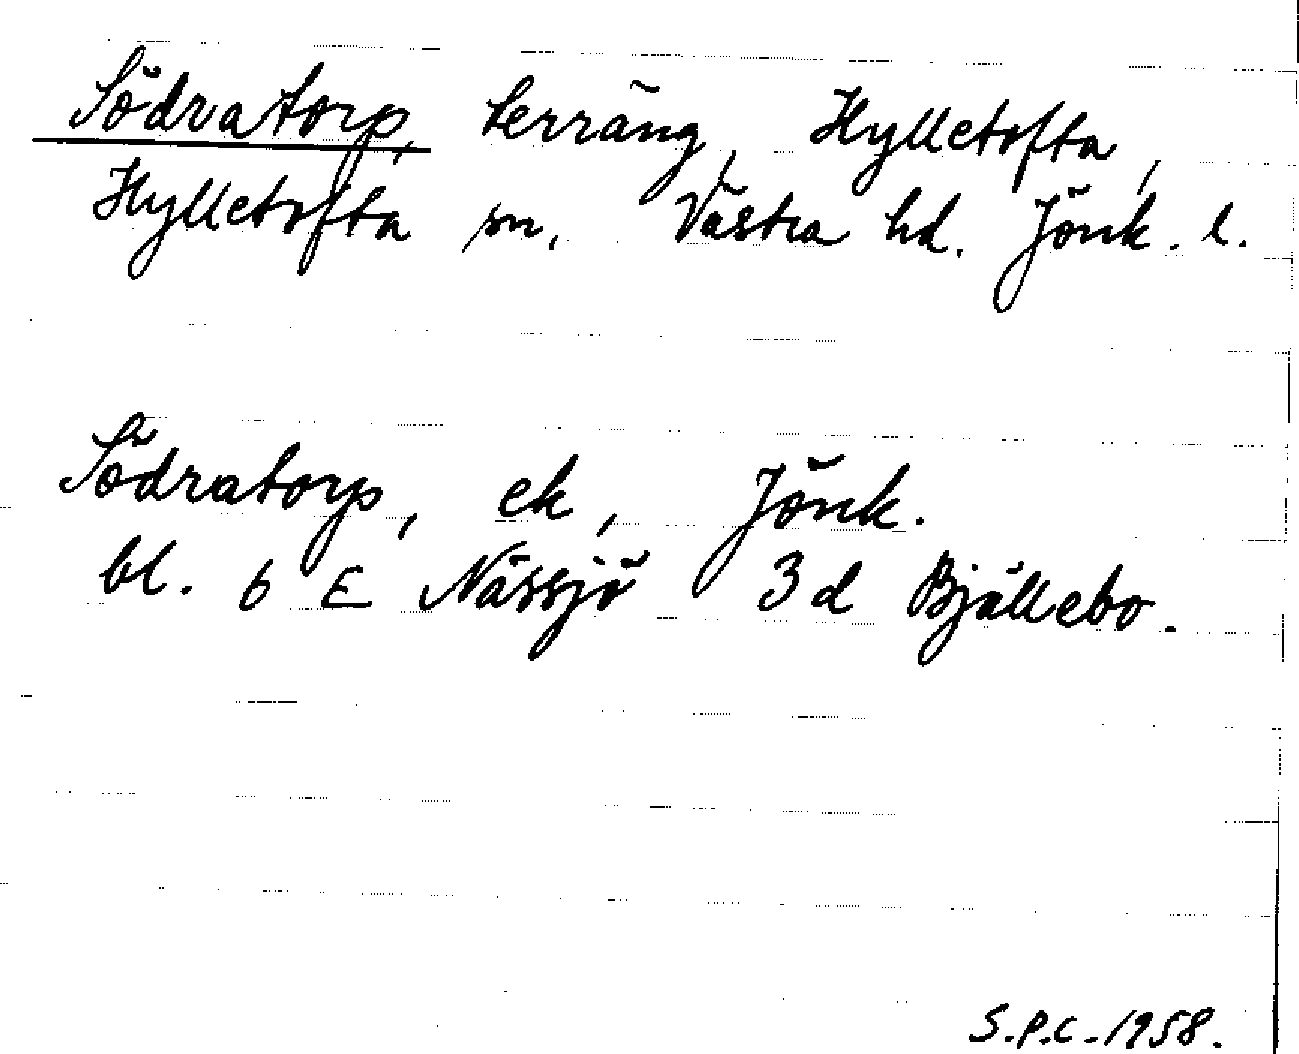 Södratorp, terräng, Hylletofta,
Hylletofta sn. Västra hd. Jönk. l.
Södratorp, ek, Jönk.
bl. 6 E Nässjö 3 d Bjällebo.
S.P.C. 1958.